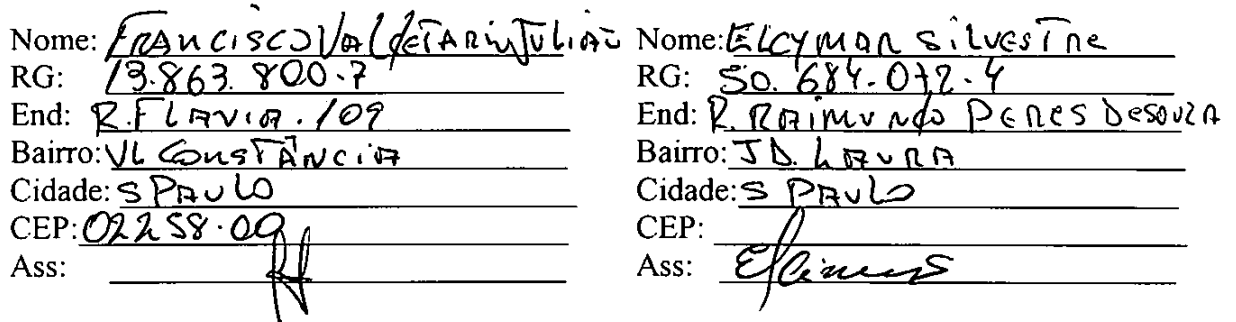 Nome: FRANCISCO VALDETARIN JULIÃO
RG: 13.863.800-7
End: R. FLAVIA. 109
Bairro: VL CONSTÂNCIA
Cidade: S PAULO
CEP: 02258-00
Ass:
Nome: ELCYMAR SILVESTRE
RG: 50.684.072-4
End: R. RAIMUNDO PERES DESOUZA
Bairro: JD. LAURA
Cidade: S PAULO
CEP:
Ass: